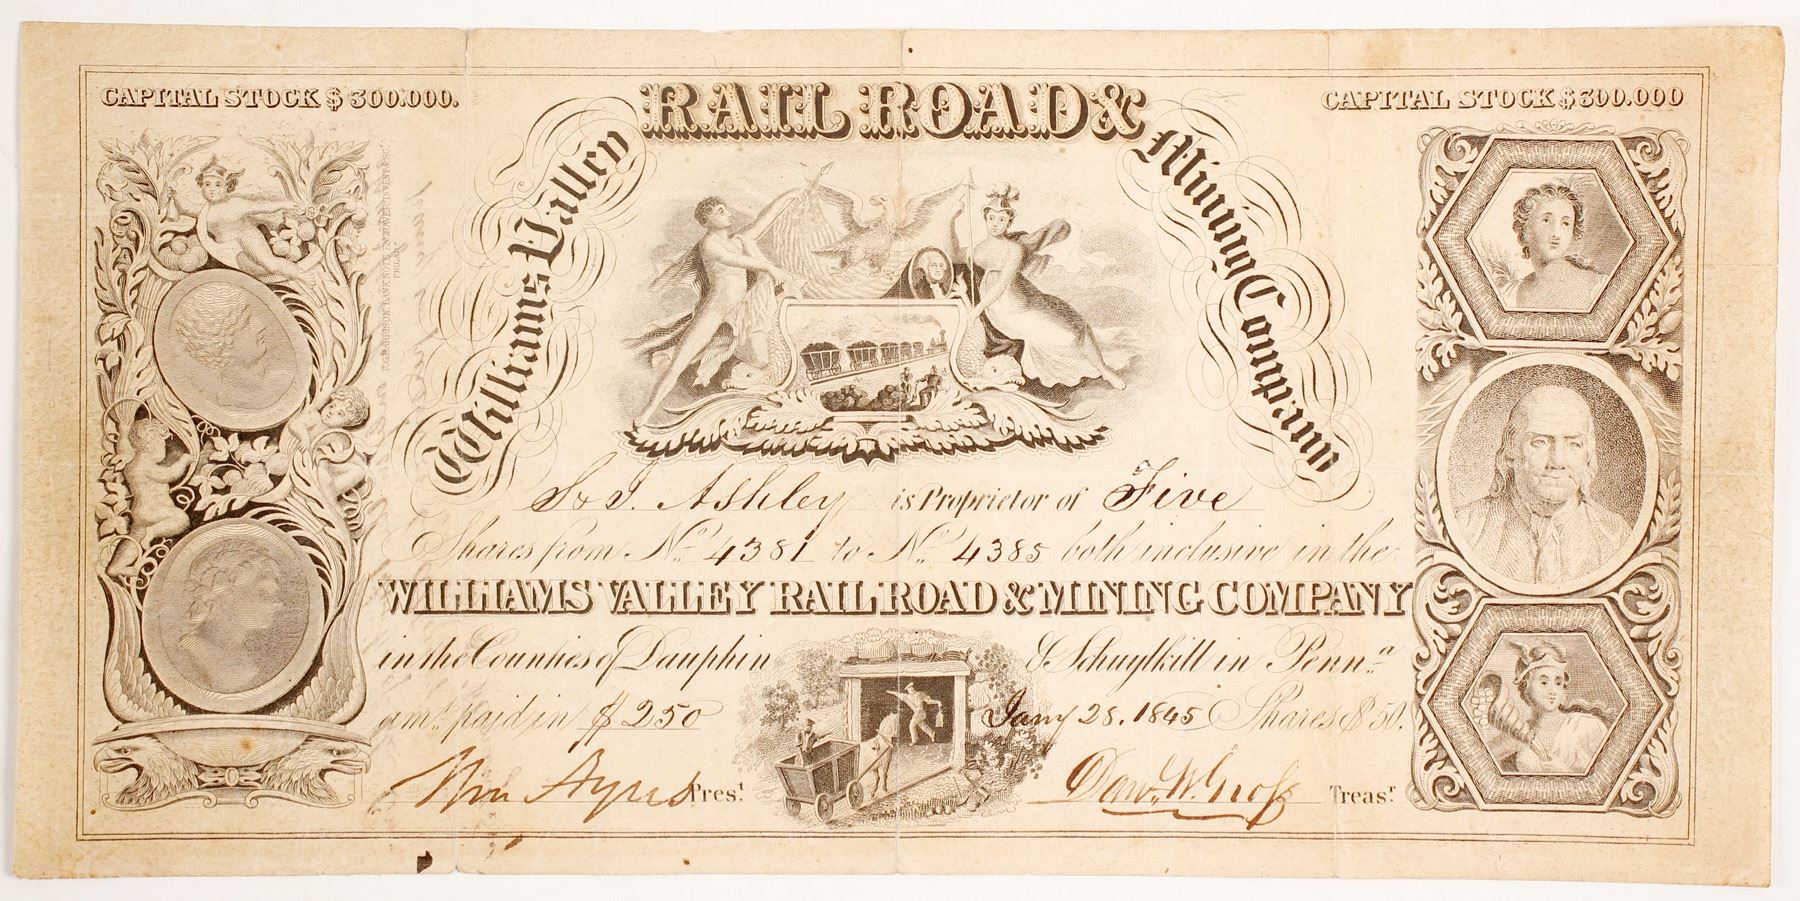 CAPITAL STOCK $300.000.
Williams Valley RAIL ROAD & Mining Company
CAPITAL STOCK $300.000
S & J. Ashley is Proprietor of Five
Shares from No. 4381 to No. 4385 both inclusive in the
WILLIAMS VALLEY RAIL ROAD & MINING COMPANY
in the Counties of Dauphin & Schuylkill in Penn.a
amt. paid in $250 Jany 28. 1845 Shares $50.
Wm Ayres Prest. Dan. W. Gross Treasr.